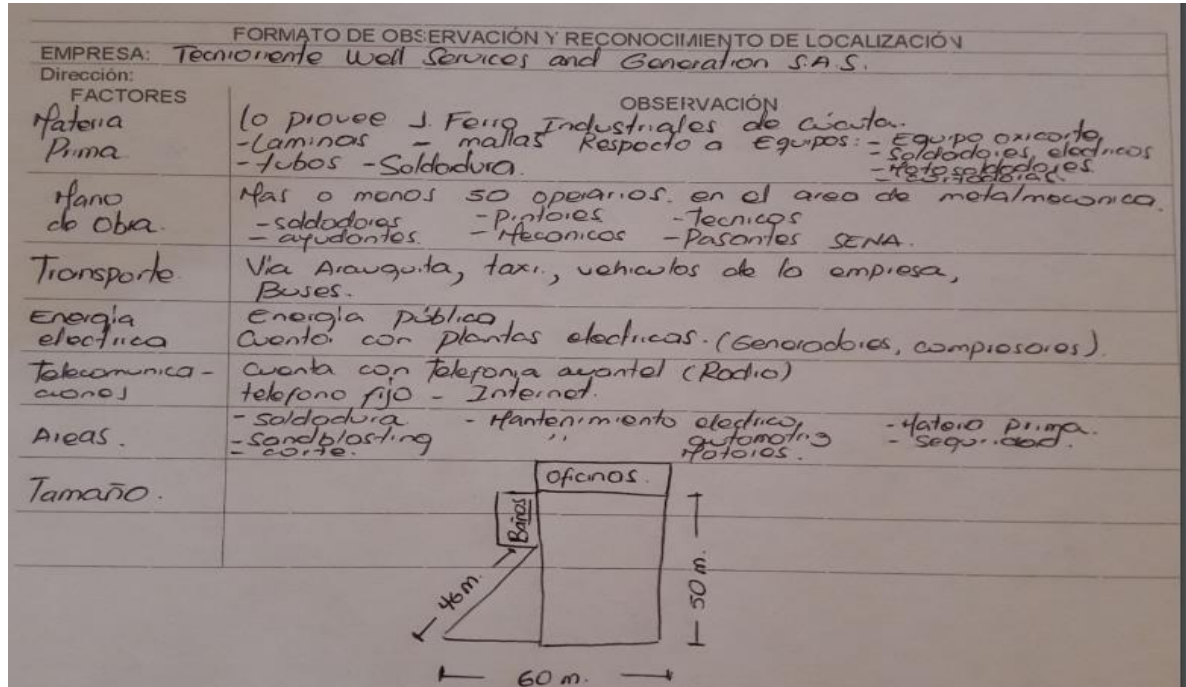 FORMATO DE OBSERVACIÓN Y RECONOCIMIENTO DE LOCALIZACIÓN
EMPRESA: Tecnioriente Well Services and Generation S.A.S.
Dirección:
FACTORES
OBSERVACIÓN
Materia Prima
lo provee J. Ferro Industriales de Cúcuta.
-Laminas - mallas Respecto a Equipos: - Equipo oxicorte,
-tubos -Soldadura. - Soldadores, electricos
- Motosoldadores
- Cortadoras.
Mano de Obra.
Mas o menos 50 operarios. en el area de metalmecanica.
-soldadores -Pintores -Tecnicos
- ayudantes. - Mecanicos -Pasantes SENA.
Transporte.
Via Arauquita, taxi., vehiculos de la empresa,
Buses.
Energia electrica
Energia Pública
Cuenta con plantas electricas. (Generadores, compresores).
Telecomunica-ciones
Cuenta con Telefonia avantel (Radio)
telefono fijo - Internet.
Areas.
- Soldadura - Mantenimiento electrico, -Materia prima.
-Sandblasting ,, automotriz - Seguridad.
- corte. Motores.
Tamaño.
Oficinas.
Baños
46 m.
50 m.
60 m.